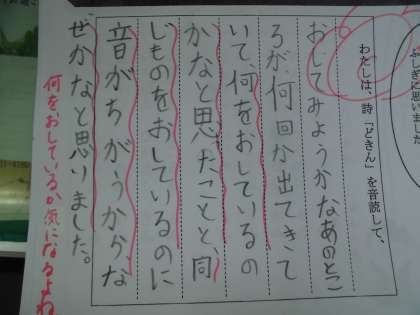 しぎに思いました
わたしは、詩「どきん」を音読して、
おしてみようかなあのとこ
ろが、何回か出てきて
いて、何をおしているの
かなと思ったことと、同
じものをおしているのに
音がちがうから、な
ぜかなと思いました。
何をおしているか気になるよね